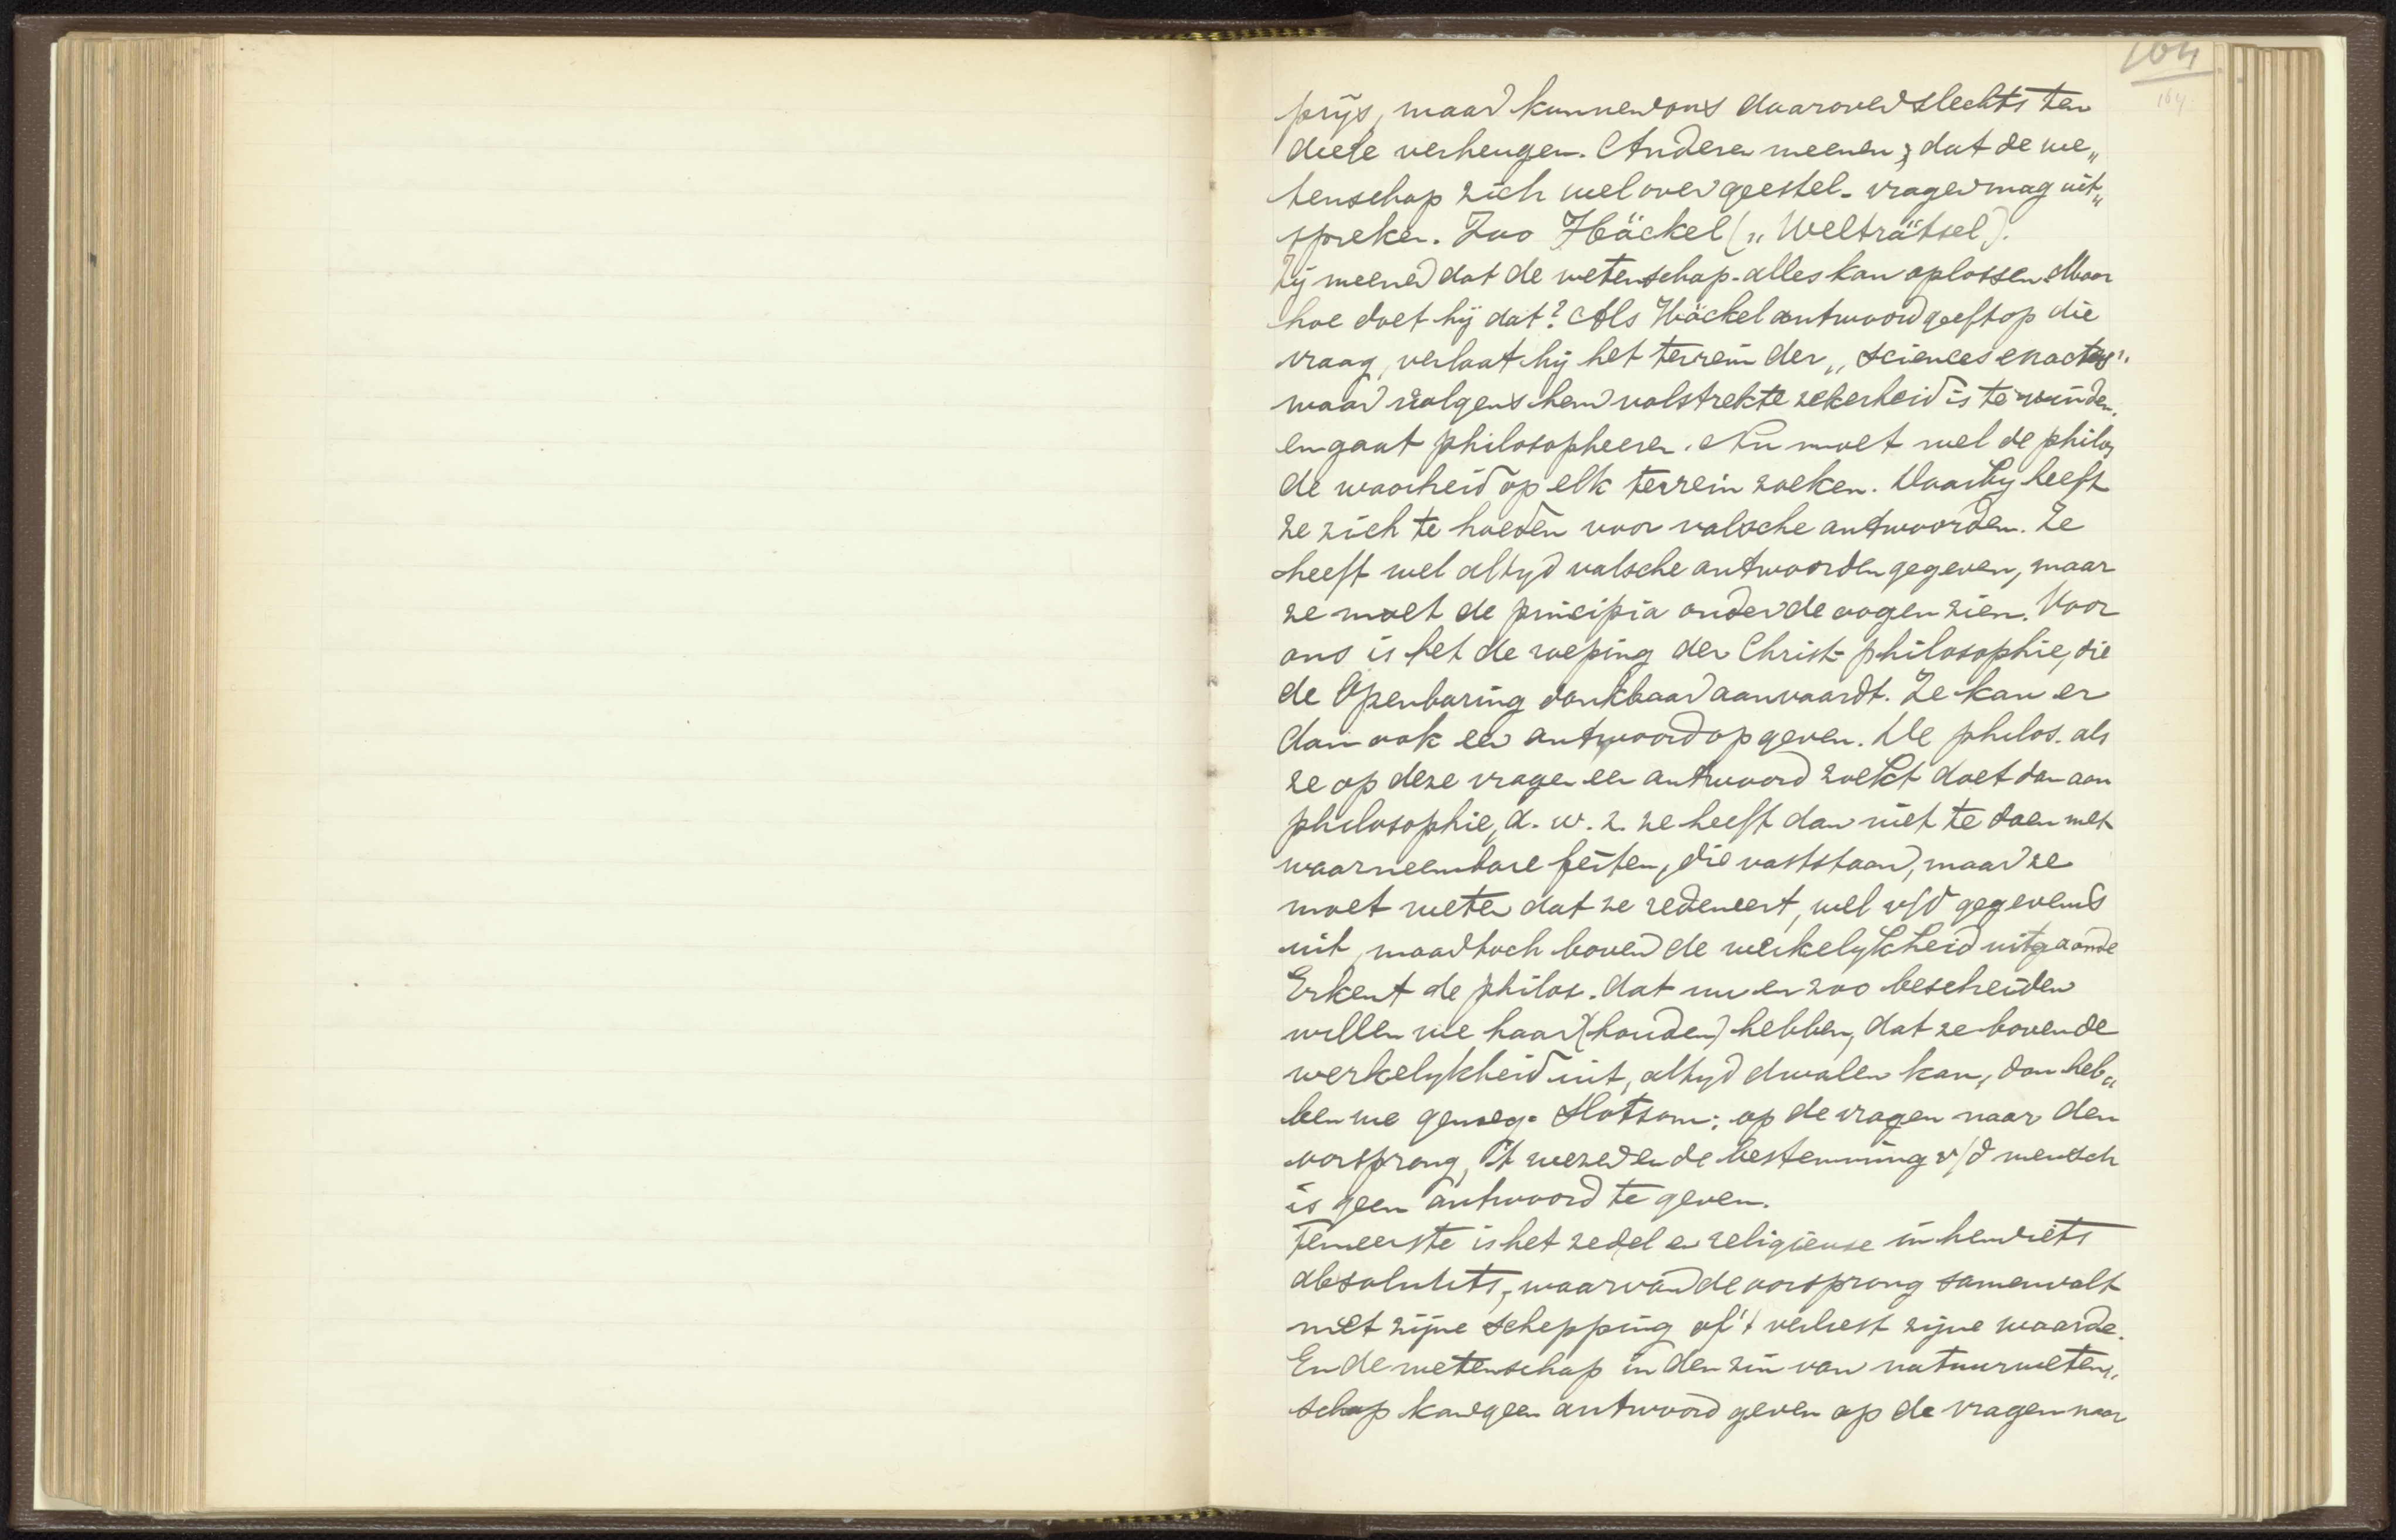 164
164.
prijs, maar kunnen ons daarover slechts ten
deele verheugen. Anderen meenen, dat de we„
tenschap zich wel over geestel. vragen mag uit„
spreken. Zoo Häckel („Welträtsel).
Zij meenen dat de wetenschap alles kan oplossen. Maar
hoe doet hij dat? Als Häckel antwoord geeft op die
vraag, verlaat hij het terrein der „sciences exactes"
waar volgens hem volstrekte zekerheid is te vinden.
en gaat philosopheeren. Nu moet wel de philos.
de waarheid op elk terrein zoeken. Daarby heeft
ze zich te hoeden voor valsche antwoorden. Ze
heeft wel altyd valsche antwoorden gegeven, maar
ze moet de principia onder de oogen zien. Voor
ons is het de roeping der Christ. philosophie, die
de Openbaring dankbaar aanvaardt. Ze kan er
dan ook een antwoord op geven. De philos. als
ze op deze vragen een antwoord zoekt doet dan aan
philosophie, d. w. z. ze heeft dan niet te doen met
waarneembare feiten, die vaststaan, maar ze
moet weten dat ze redeneert, wel v/d gegevens
uit, maar toch boven de werkelykheid uitgaande
Erkent de philos. dat nu en zoo bescheiden
willen we haar (houden) hebben, dat ze boven de
werkelykheid uit, altyd dwalen kan, dan heb„
ben we genoeg. Slotsom: op de vragen naar den
oorsprong, 't wezen en de bestemming v/d mensch
is geen antwoord te geven.
Ten eerste is het zedel en religieuse in hem iets
absoluuts, waarvan de oorsprong samenvalt
met zijne schepping of 't verliest zijne waarde.
En de wetenschap in den zin van natuurweten„
schap kan geen antwoord geven op de vragen naar